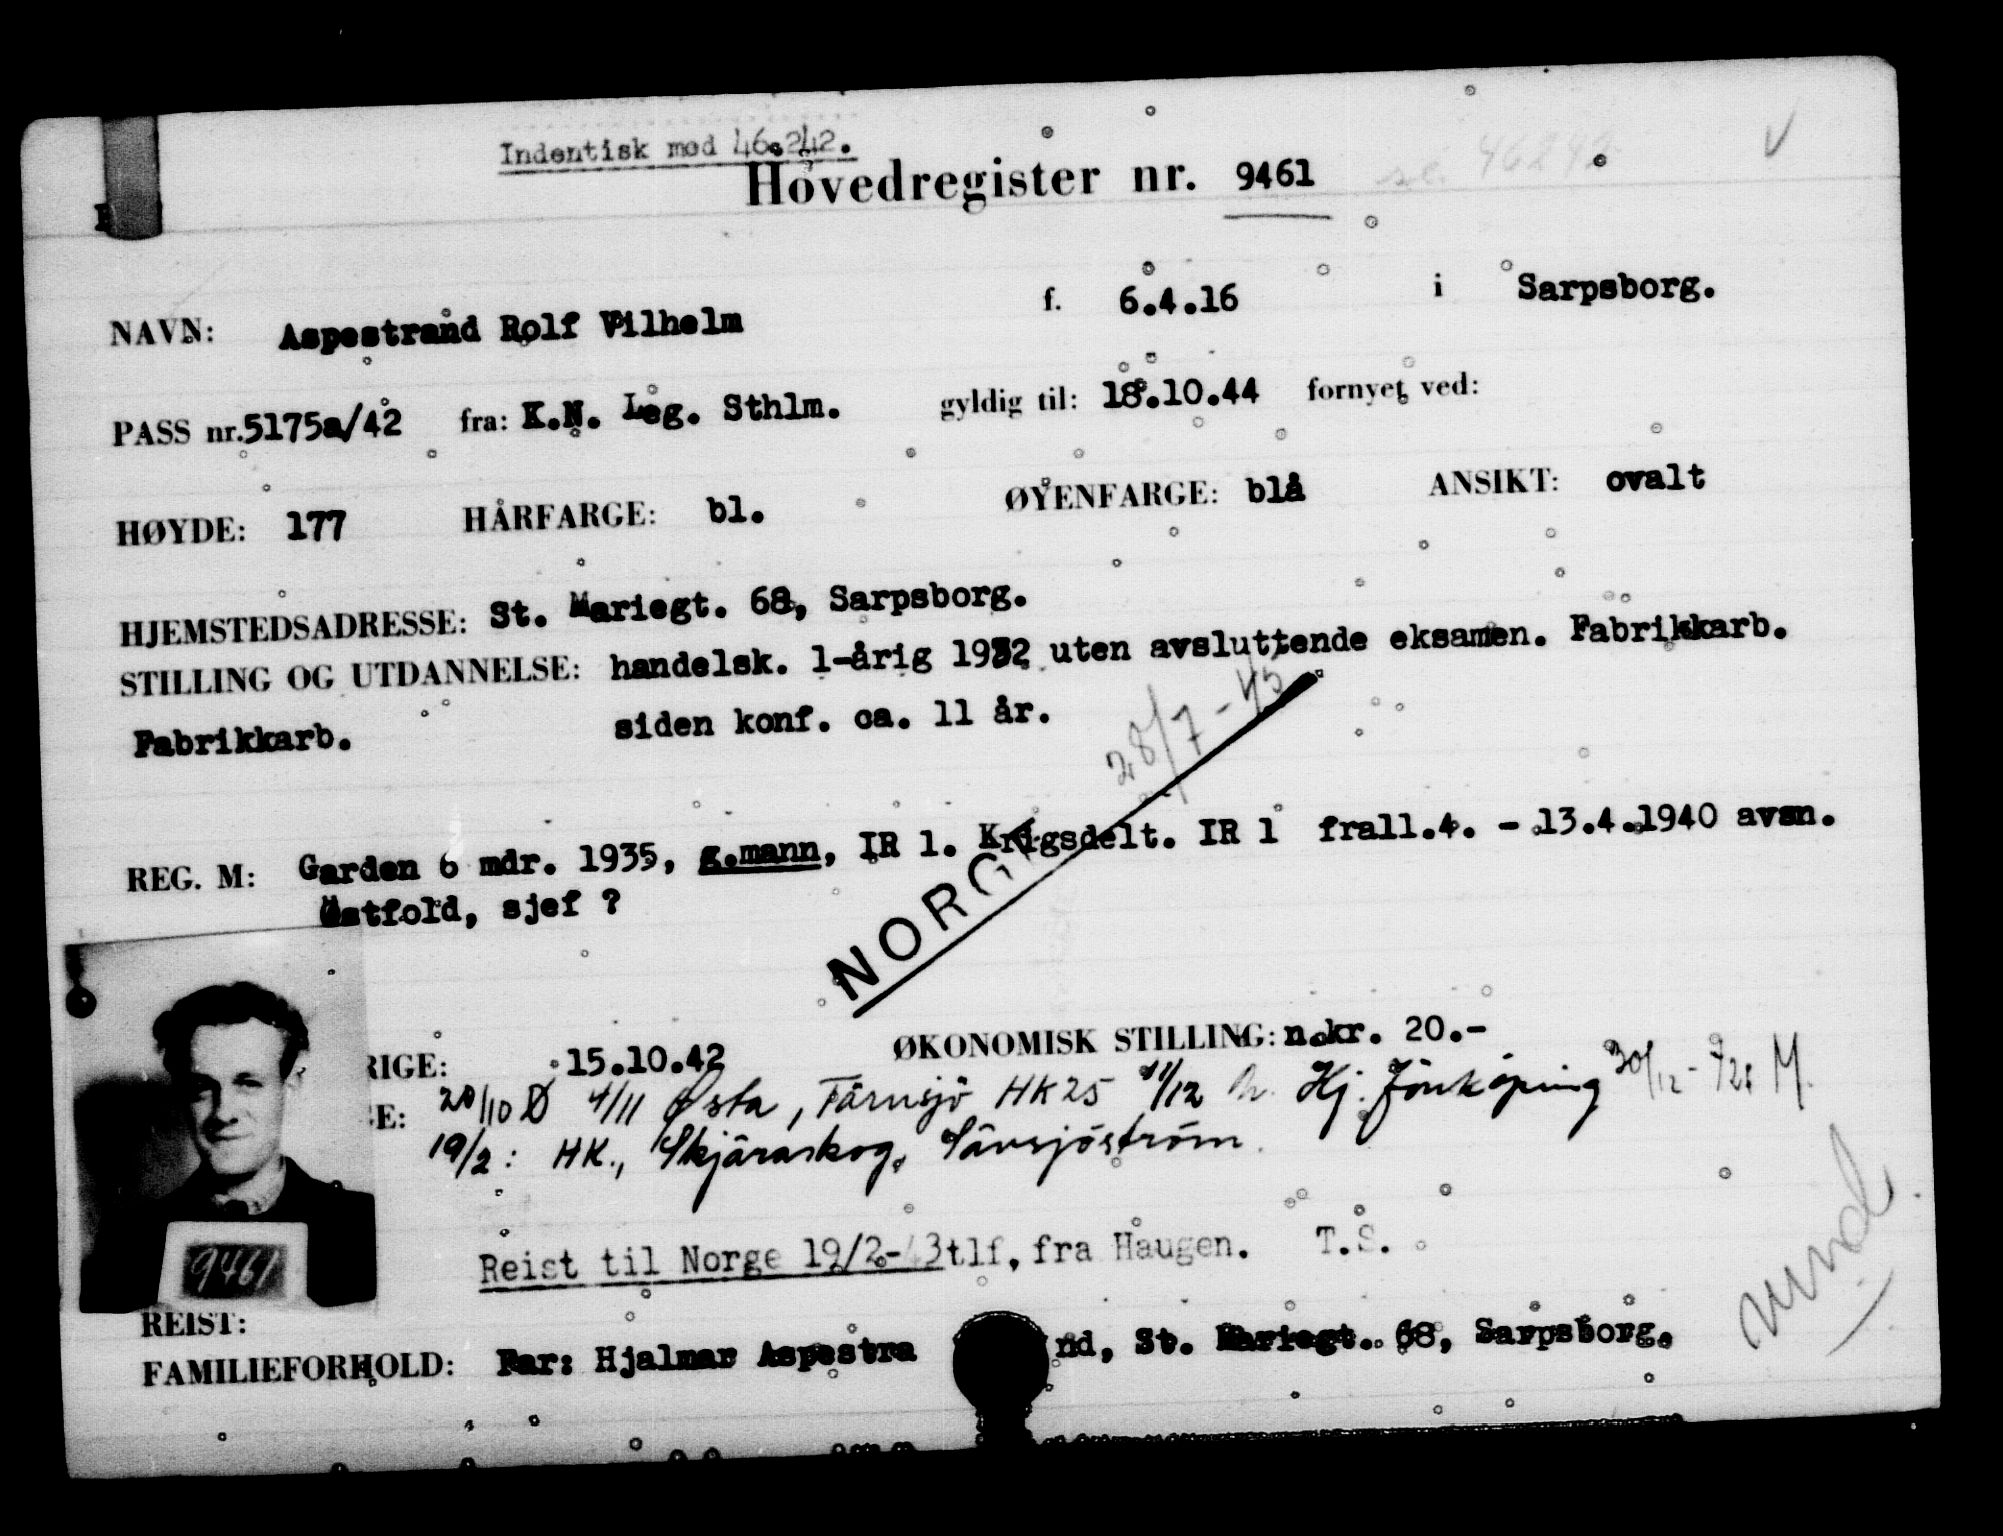 Indentisk med 46.242.
Hovedregister nr. 9461 se. 46242 V
NAVN: Aspestrand Rolf Vilhelm f. 6.4.16 i Sarpsborg.
PASS nr.5175a/42 fra: K.N. Leg. Sthlm. gyldig til: 18.10.44 fornyet ved:
HØYDE: 177 HÅRFARGE: bl. ØYENFARGE: blå ANSIKT: ovalt
HJEMSTEDSADRESSE: St. Mariegt. 68, Sarpsborg.
STILLING OG UTDANNELSE: handelsk. 1-årig 1932 uten avsluttende eksamen. Fabrikkarb.
Fabrikkarb. siden konf. ca. 11 år.
28/7-45
REG. M: Garden 6 mdr. 1935, g.mann, IR 1. Krigsdelt. IR 1 fra11.4. - 13.4.1940 avsn.
Østfold, sjef ?
NORGE
RIGE: 15.10.42 ØKONOMISK STILLING: n.kr. 20.-
E: 20/10 Ø 4/11 Østa, Tärnsjö HK25 11/12 Hj. Jönköping 30/12 - M.
19/2: HK., Skjäraskog, Sävsjöström.
Reist til Norge 19/2-43tlf. fra Haugen. T.S.
9461
REIST:
FAMILIEFORHOLD: Far: Hjalmar Aspestra nd, St. Mariegt. 68, Sarpsborg.